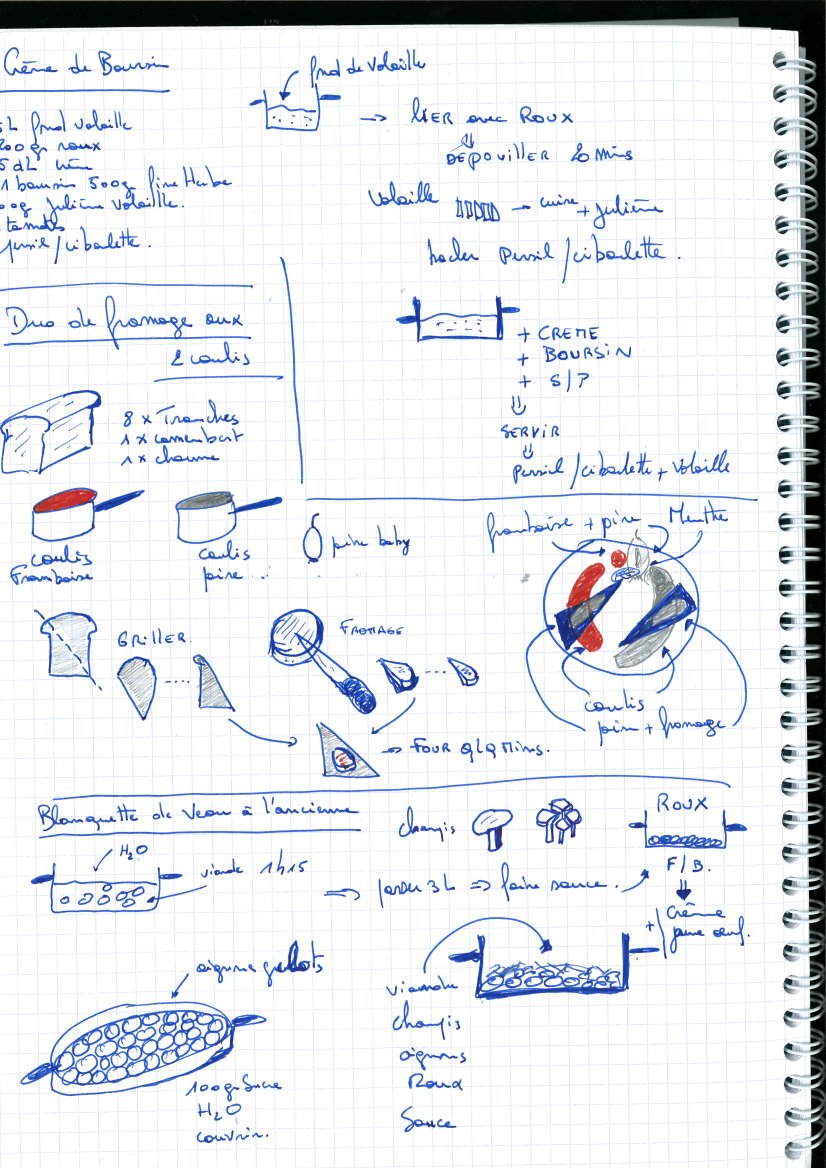 Crème de Boursin
fond de Volaille
5L fond volaille
200gr roux
5 dL crème
1 boursin 500g fine Herbe
00g Julienne Volaille.
tomates
persil/ciboulette.
→ LIER avec ROUX
⇓
DÉPOUILLER 20 mins
Volaille → cuire + Julienne
hacher Persil/ciboulette.
+ CREME
+ BOURSIN
+ S/P
⇓
SERVIR
⇓
Persil/ciboulette + Volaille
Duo de fromage aux
2 coulis
8 x Tranches
1 x camembert
1 x chaume
coulis
Framboise
coulis
poire
poire baby
framboise + poire
Menthe
GRILLER
FROMAGE
→ FOUR qlq mins.
coulis
poire + fromage
Blanquette de Veau à l'ancienne
H2O
viande 1h15
champis
ROUX
F/B.
⇒ passer 3L ⇒ faire sauce.
⇓
+ Crème
jaune oeuf.
oignons grelots
100gr Sucre
H2O
couvrir.
viande
champis
oignons
Roux
Sauce